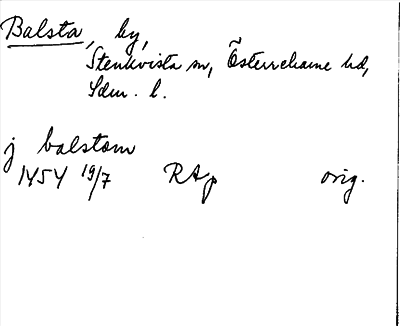 Balsta, by,
Stenkvista sn, Österrekarne hd,
Sdm. l.
j balstom
1454 19/7 RAp orig.